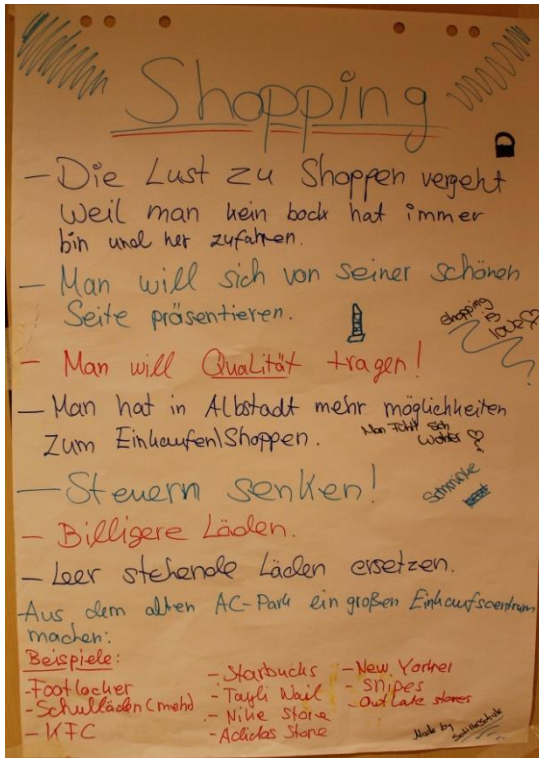 Shopping
- Die Lust zu Shoppen vergeht
weil man kein bock hat immer
hin und her zufahren.
- Man will sich von seiner schönen
Seite präsentieren.
shopping
is
love
- Man will Qualität tragen!
- Man hat in Albstadt mehr möglichkeiten
zum Einkaufen/Shoppen.
Man fühlt sich
wohler
- Steuern senken!
Schminke
- Billigere Läden.
- Leer stehende Läden ersetzen.
- Aus dem alten AC-Park ein großen Einkaufscentrum
machen:
Beispiele:
- Footlocker
- Schulläden (mehr)
- KFC
- Starbucks
- Tayli Wail
- Nike Store
- Adidas Store
- New Yorker
- Snipes
- Outlate stores
Made by